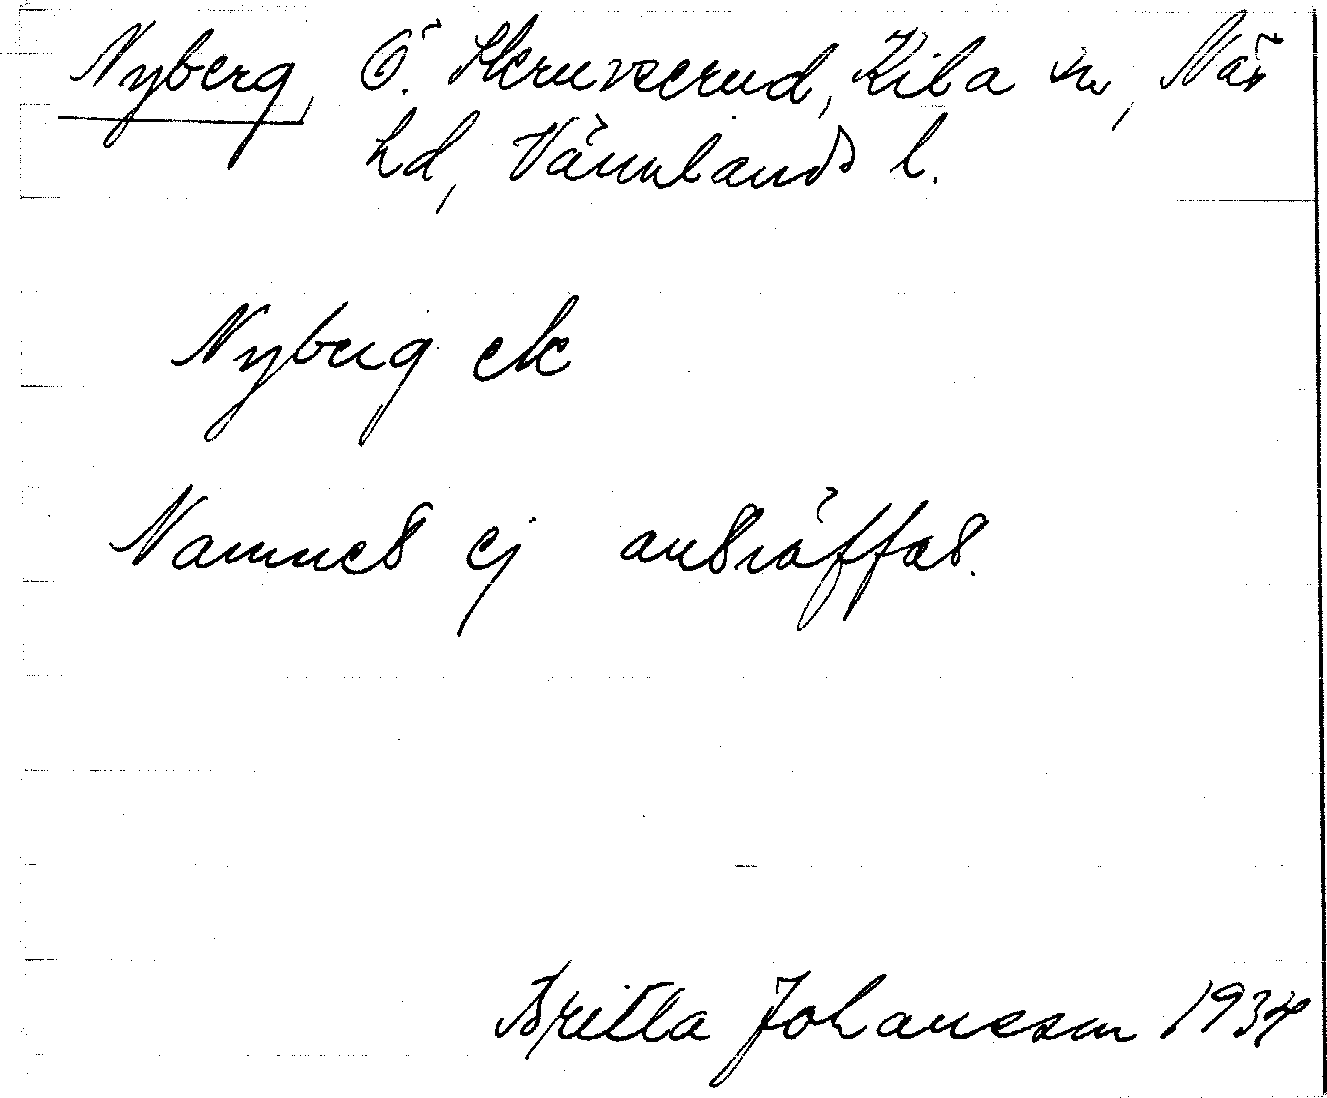 Nyberg, Ö. Skruvserud, Kila sn, Näs
hd, Värmlands l.
Nyberg ek
Namnet ej anträffat.
Britta Johansson 1934